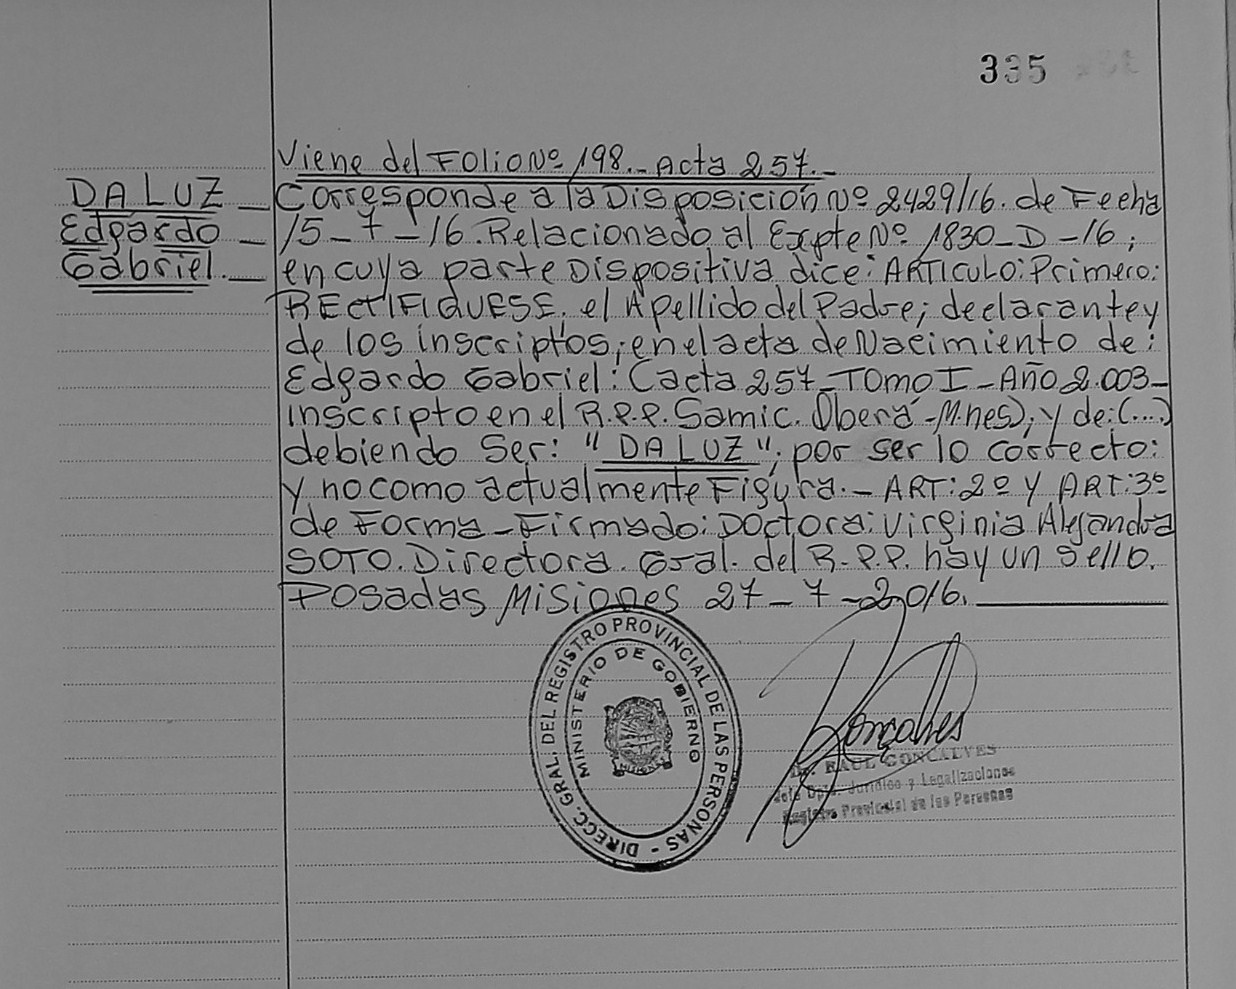 335
Viene del Folio Nº 198.- Acta 257.-
DA LUZ _ Corresponde a la Disposición Nº 2429/16. de Fecha
Edgardo _ 15_7_16. Relacionado al Expte Nº. 1830_D_16;
Gabriel. _ en cuya parte Dispositiva dice: ARTICULO: Primero:
RECTIFIQUESE. el Apellido del Padre; declarante y
de los inscriptos; en el acta de Nacimiento de:
Edgardo Gabriel: (acta 257_TOMO I_Año 2.003_
inscripto en el R.P.P. Samic. Oberá-M.nes); y de: (....)
debiendo Ser: "DA LUZ"; por ser lo correcto:
y no como actualmente Figura.- ART: 2º Y ART: 3º
de Forma_Firmado: Doctora: Virginia Alejandra
SOTO. Directora. Gral. del R.P.P. hay un sello.
Posadas Misiones 27_7_2016.
DIRECC. GRAL. DEL REGISTRO PROVINCIAL DE LAS PERSONAS -
MINISTERIO DE GOBIERNO
Gonçalves
Dr. RAUL GONCALVES
Jefe Dpto. Jurídico y Legalizaciones
Registro Provincial de las Personas